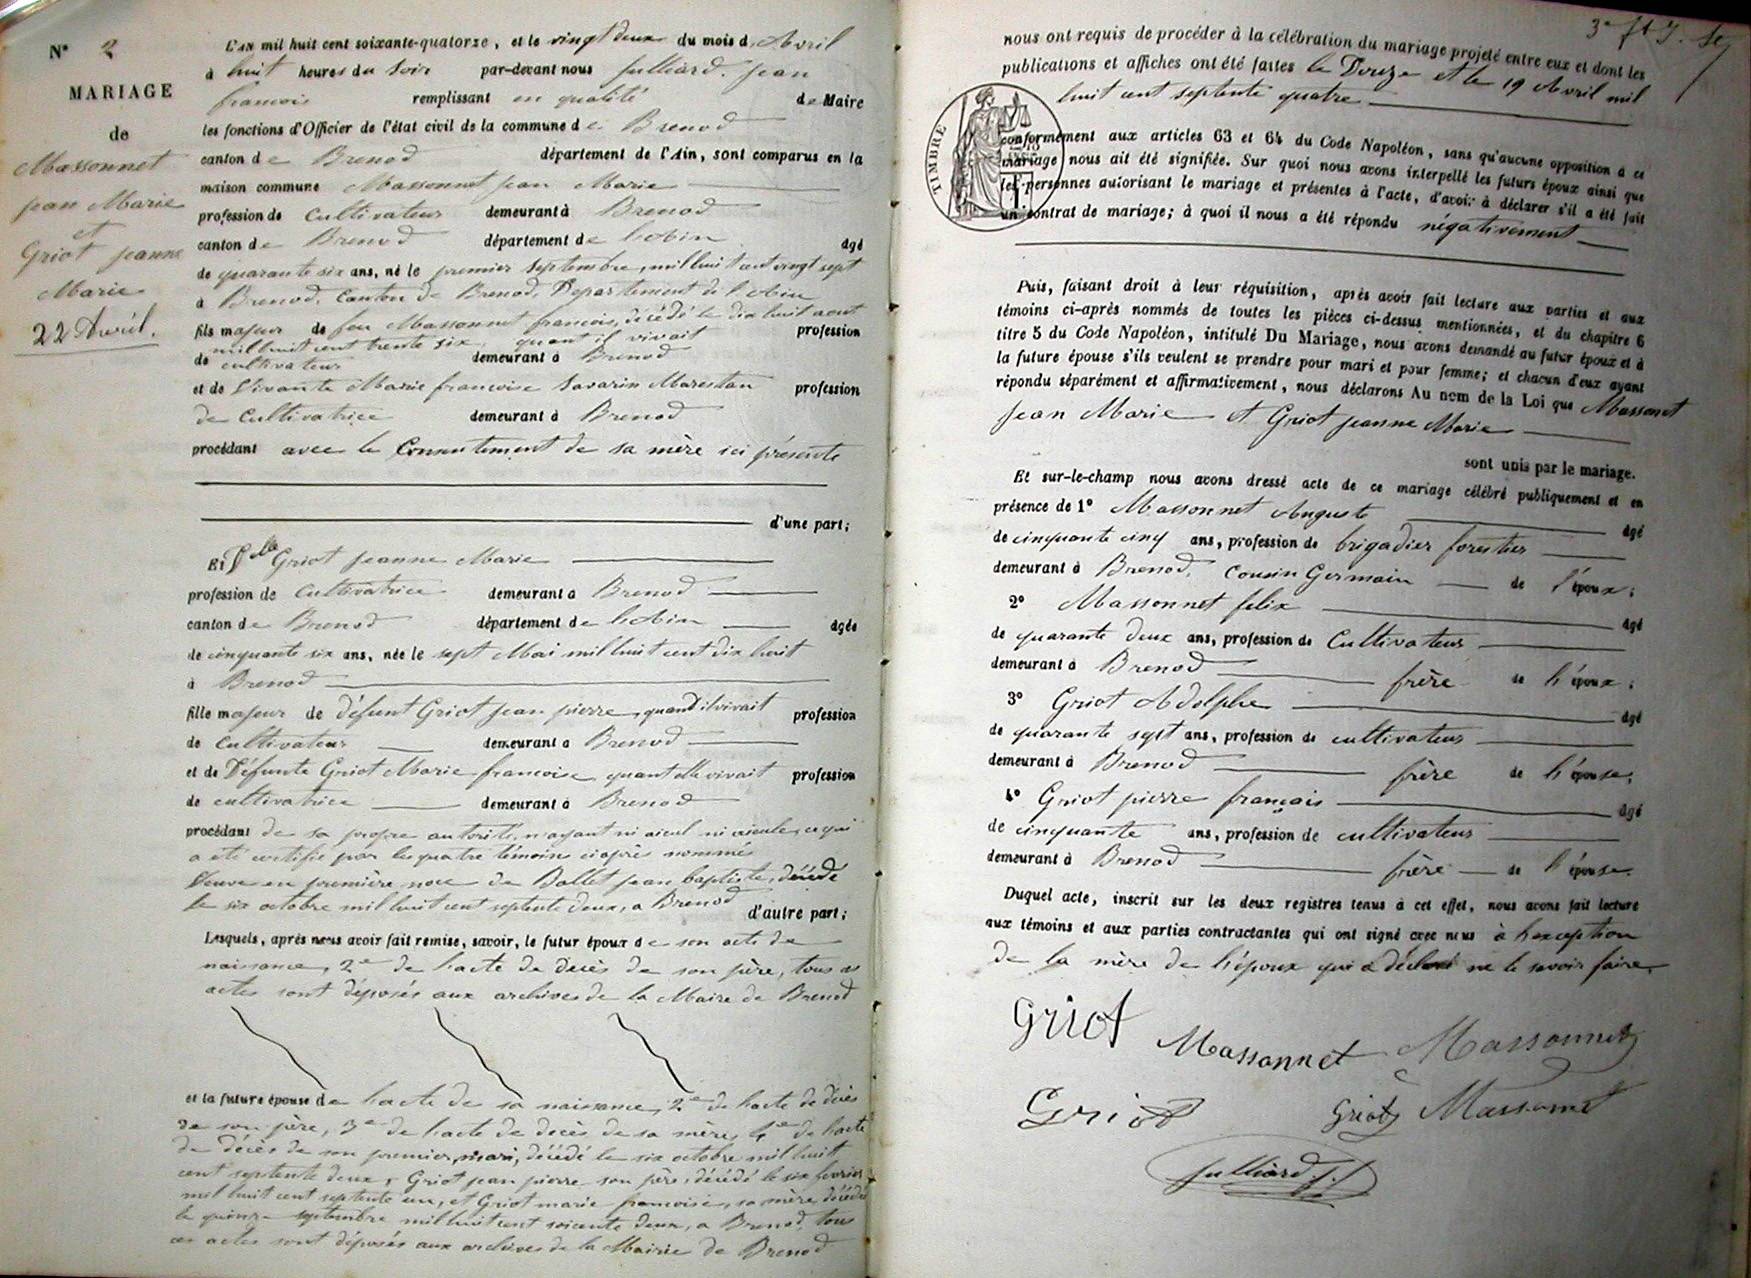 N° 2
MARIAGE
de
Massonnet
jean Marie
et
Griot jeanne
Marie
22 Avril.
L'AN mil huit cent soixante-quatorze, et le vingt deux du mois d Avril
à huit heures du Soir par-devant nous Julliard. jean
francois remplissant en qualité de Maire
les fonctions d'Officier de l'état civil de la commune de Brenod
canton de Brenod département de l'Ain, sont comparus en la
maison commune Massonnet jean Marie
profession de Cultivateur demeurant à Brenod
canton de Brenod département de l'Ain âgé
de quarante six ans, né le premier Septembre, mil huit cent vingt sept
à Brenod, Canton de Brenod, Departement de l'Ain
fils majeur de feu Massonnet francois, décédé le dix huit aout
mil huit cent trente six, quant il vivait profession
de cultivateur demeurant à Brenod
et de Vivante Marie francoise Savarin Marestan profession
de Cultivatrice demeurant à Brenod
procédant avec le Consentement de sa mère ici présente
d'une part;
Et Dlle Griot jeanne Marie
profession de Cultivatrice demeurant à Brenod
canton de Brenod département de l'Ain âgée
de cinquante six ans, née le sept Mai mil huit cent dix huit
à Brenod
fille majeur de Défunt Griot jean pierre, quand il vivait profession
de Cultivateur demeurant à Brenod
et de Défunte Griot Marie francoise, quant elle vivait profession
de cultivatrice demeurant à Brenod
procédant de sa propre autorité, n'ayant ni aieul ni aieule, ce qui
a été certifié par les quatre témoins ciaprès nommés
Veuve en première noce de Ballet jean baptiste, décédé
le six octobre mil huit cent septente deux, a Brenod d'autre part;
Lesquels, après nous avoir fait remise, savoir, le futur époux de son acte de
naissance, 2e de l'acte de décès de son père, tous ces
actes sont déposés aux archives de la Maire de Brenod
et la future épouse de l'acte de sa naissance, 2e de l'acte de décès
de son père, 3e de l'acte de décès de sa mère, 4e de l'acte
de décès de son premier mari, décédé le six octobre mil huit
cent septente deux, Griot jean pierre son père, décédé le six fevrier
mil huit cent septente un, et Griot marie francoise, sa mère, décédé
le quinze septembre mil huit cent soicente deux, a Brenod, tous
ces actes sont déposés aux archives de la Mairie de Brenod
nous ont requis de procéder à la célébration du mariage projeté entre eux et dont les
publications et affiches ont été faites le Douze et le 19 Avril mil
huit cent septente quatre
TIMBRE
conformément aux articles 63 et 64 du Code Napoléon, sans qu'aucune opposition à ce
mariage nous ait été signifiée. Sur quoi nous avons interpellé les futurs époux ainsi que
les personnes autorisant le mariage et présentes à l'acte, d'avoir à déclarer s'il a été fait
un contrat de mariage; à quoi il nous a été répondu négativement
Puis, faisant droit à leur réquisition, après avoir fait lecture aux parties et aux
témoins ci-après nommés de toutes les pièces ci-dessus mentionnées, et du chapitre 6
titre 5 du Code Napoléon, intitulé Du Mariage, nous avons demandé au futur époux et à
la future épouse s'ils veulent se prendre pour mari et pour femme; et chacun d'eux ayant
répondu séparément et affirmativement, nous déclarons Au nom de la Loi que Massonnet
Jean Marie et Griot jeanne Marie
sont unis par le mariage.
Et sur-le-champ nous avons dressé acte de ce mariage célébré publiquement et en
présence de 1° Massonnet Auguste âgé
de cinquante cinq ans, profession de brigadier forestier
demeurant à Brenod, Cousin Germain de l'époux;
2° Massonnet felix âgé
de quarante deux ans, profession de Cultivateur
demeurant à Brenod frère de l'époux;
3° Griot Adolphe âgé
de quarante sept ans, profession de cultivateur
demeurant à Brenod frère de l'épouse;
4° Griot pierre français âgé
de cinquante ans, profession de cultivateur
demeurant à Brenod frère de l'épouse.
Duquel acte, inscrit sur les deux registres tenus à cet effet, nous avons fait lecture
aux témoins et aux parties contractantes qui ont signé avec nous à l'exception
de la mère de l'époux qui a déclaré ne le savoir faire
Griot Massonnet Massonnet
Griot Griot Massonnet
Julliard J.